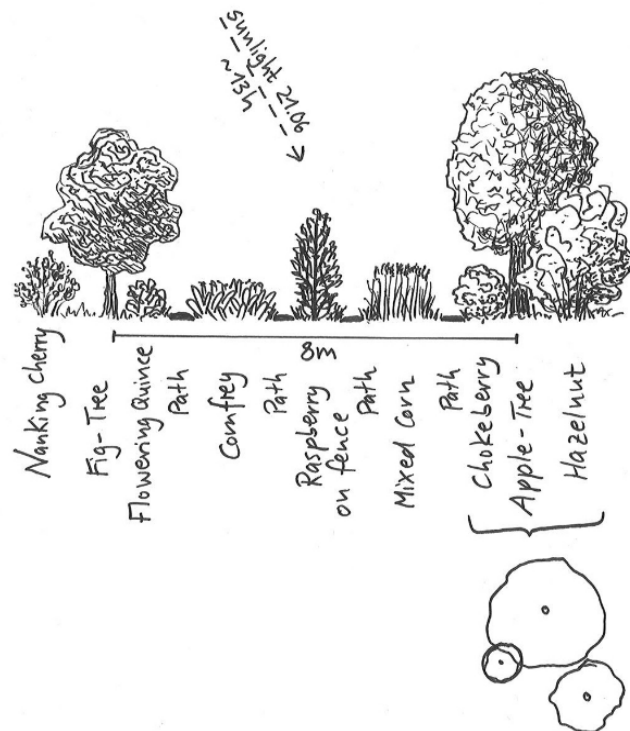 sunlight 21.06
~13h
8m
Nanking Cherry
Fig-Tree
Flowering Quince
Path
Comfrey
Path
Raspberry
on fence
Path
Mixed Corn
Path
Chokeberry
Apple-Tree
Hazelnut